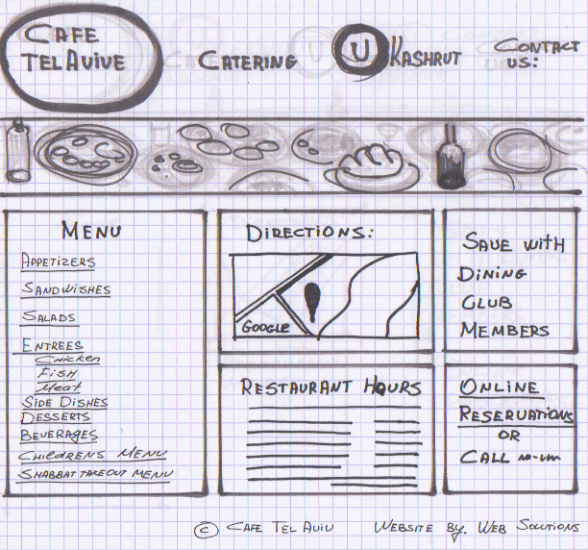 CAFE
TEL AVIVE
CATERING
U
KASHRUT
CONTACT
US:
MENU
APPETIZERS
SANDWISHES
SALADS
ENTREES
Chicken
FISH
Meat
SIDE DISHES
DESSERTS
BEVERAGES
CHILDRENS MENU
SHABBAT TAKEOUT MENU
DIRECTIONS:
GOOGLE
RESTAURANT HOURS
SAVE WITH
DINING
CLUB
MEMBERS
ONLINE
RESERVATIONS
OR
CALL
© CAFE TEL AVIV WEBSITE BY. WEB SOLUTIONS